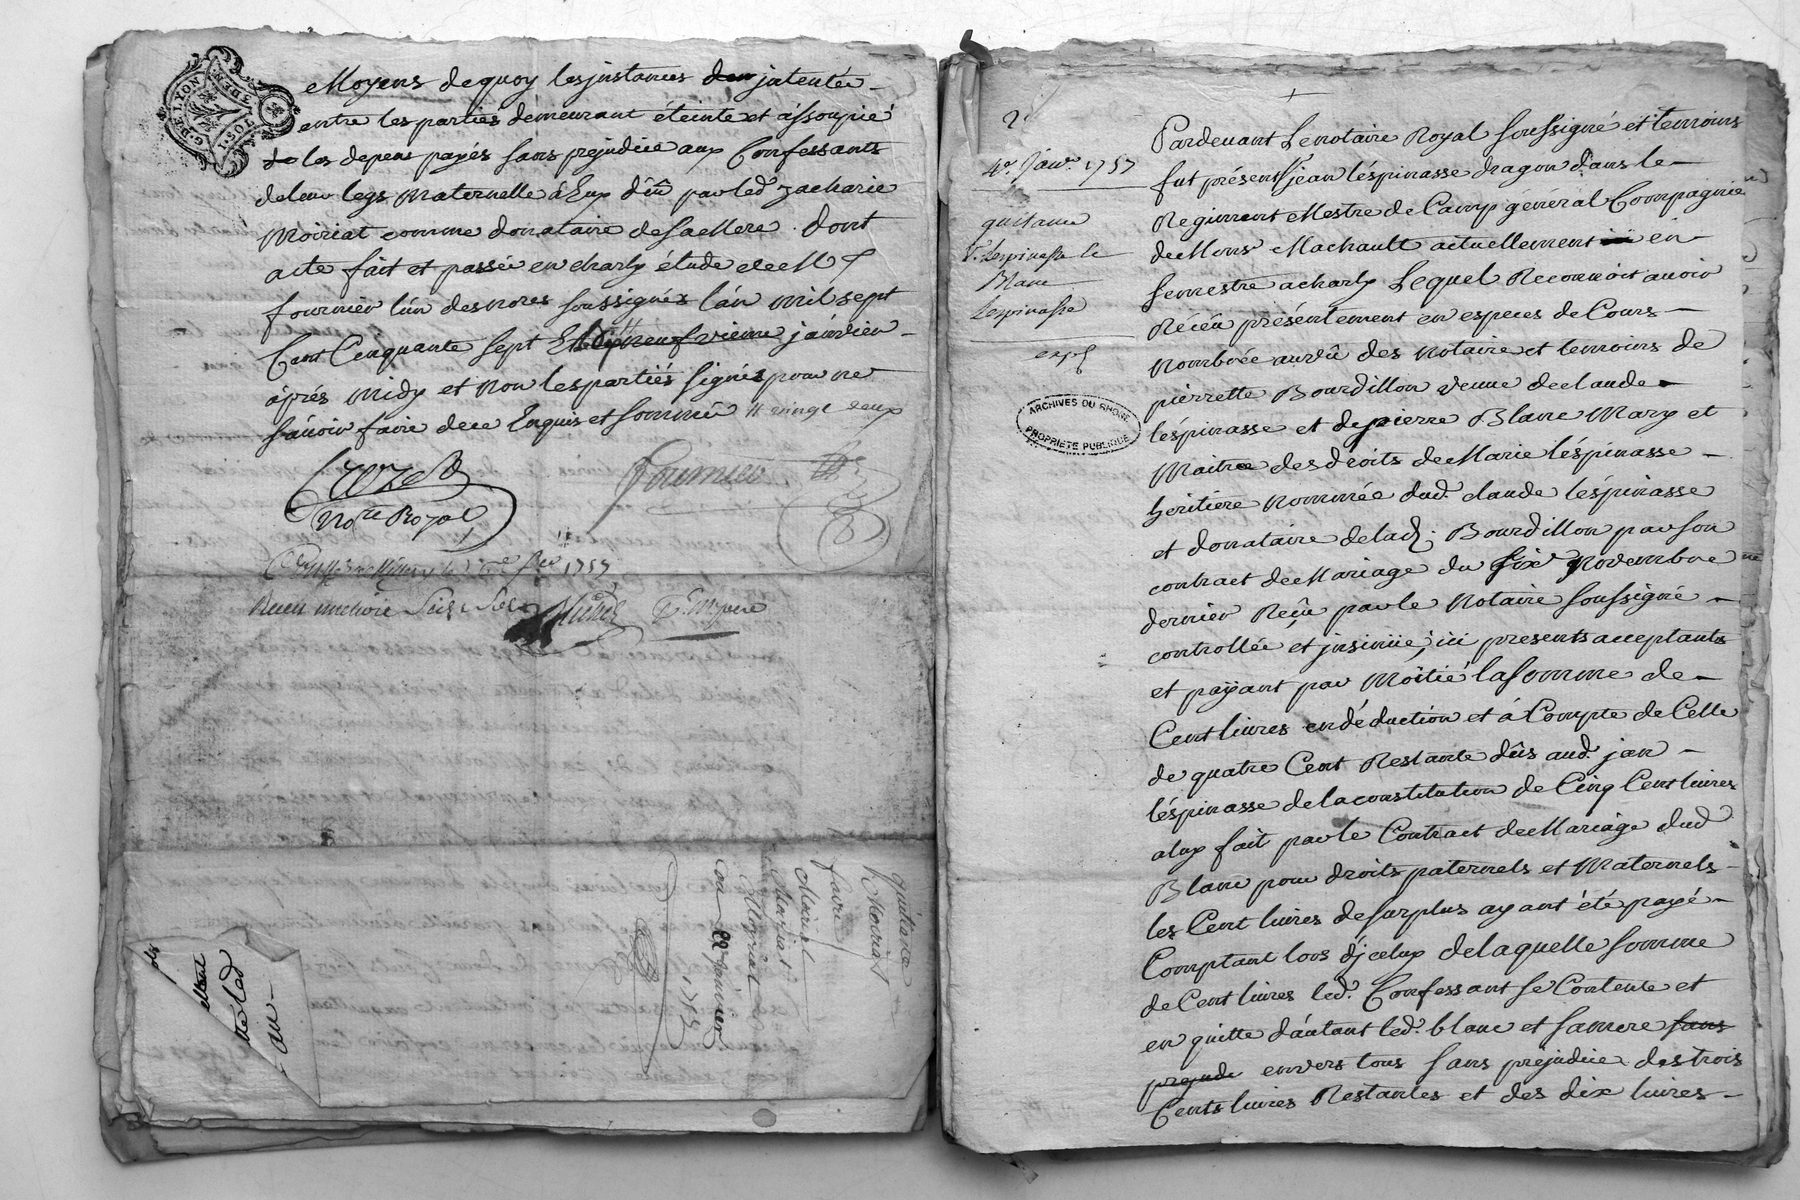 G. DE LYON
3 DEN
1SOL
Moyens de quoy les jnstances jntentée
entre les partiës demeurant éteinte et assoupië
les depens payés sans prejudice aux Confessants
de leur legs Maternelle à Eux dëu par led. Zacharie
Moiriat comme donataire de sa Mere. dont
acte fait et passée en charly étude de M.
fournier lun des no.res soussignés lán mil sept
Cent Cinquante sept janvier
áprés midy et non les partiés signés pour ne
sávoir faire de ce Enquis et sommée # vingt deux
Fournier
No.re Royal
1757
Receu
quittance
Moiriat
favre
Moiriat
Moiriat
22 janvier
1757
led
au
2
4.e Janv. 1757
quittance
Lespinasse le
Blanc
Lespinasse
exp.
ARCHIVES DU RHONE
PROPRIETE PUBLIQUE
Pardevant Le notaire Royal soussigné et temoins
fut présent S.r jean léspinasse dragon dans le
Regiment Mestre de Camp général Compagnie
de Mons.r Machault actuellement en
semestre a charly Lequel Reconnoit avoir
Récëu présentement en especes de Cours
nombrée au vëu des notaire et temoins de
pierrette Bourdillon veuve de claude
léspinasse et de pierre Blanc Mary et
Maitre des droits de Marie léspinasse
heritiere nommée dud. claude léspinasse
et donataire de lad. Bourdillon par son
contract de Mariage du six Novembre
dernier Reçu par le Notaire soussigné
controllée et jnsinüe, ici presents acceptants
et payant par Moitié la somme de
Cent livres en déduction et à Compte de Celle
de quatre Cent Restante dûs aud. jean
léspinasse de la constitution de Cinq Cent livres
a lux fait par le Contract de Mariage dud
Blanc pour droits paternels et Maternels
les Cent livres de surplus ayant été payé
Comptant lors d'jcelux de laquelle somme
de Cent livres led. Confessant se Contente et
en quitte dáutant led. blanc et sa mere sans
prejude envers tous sans prejudice des trois
Cents livres Restantes et des dix livres